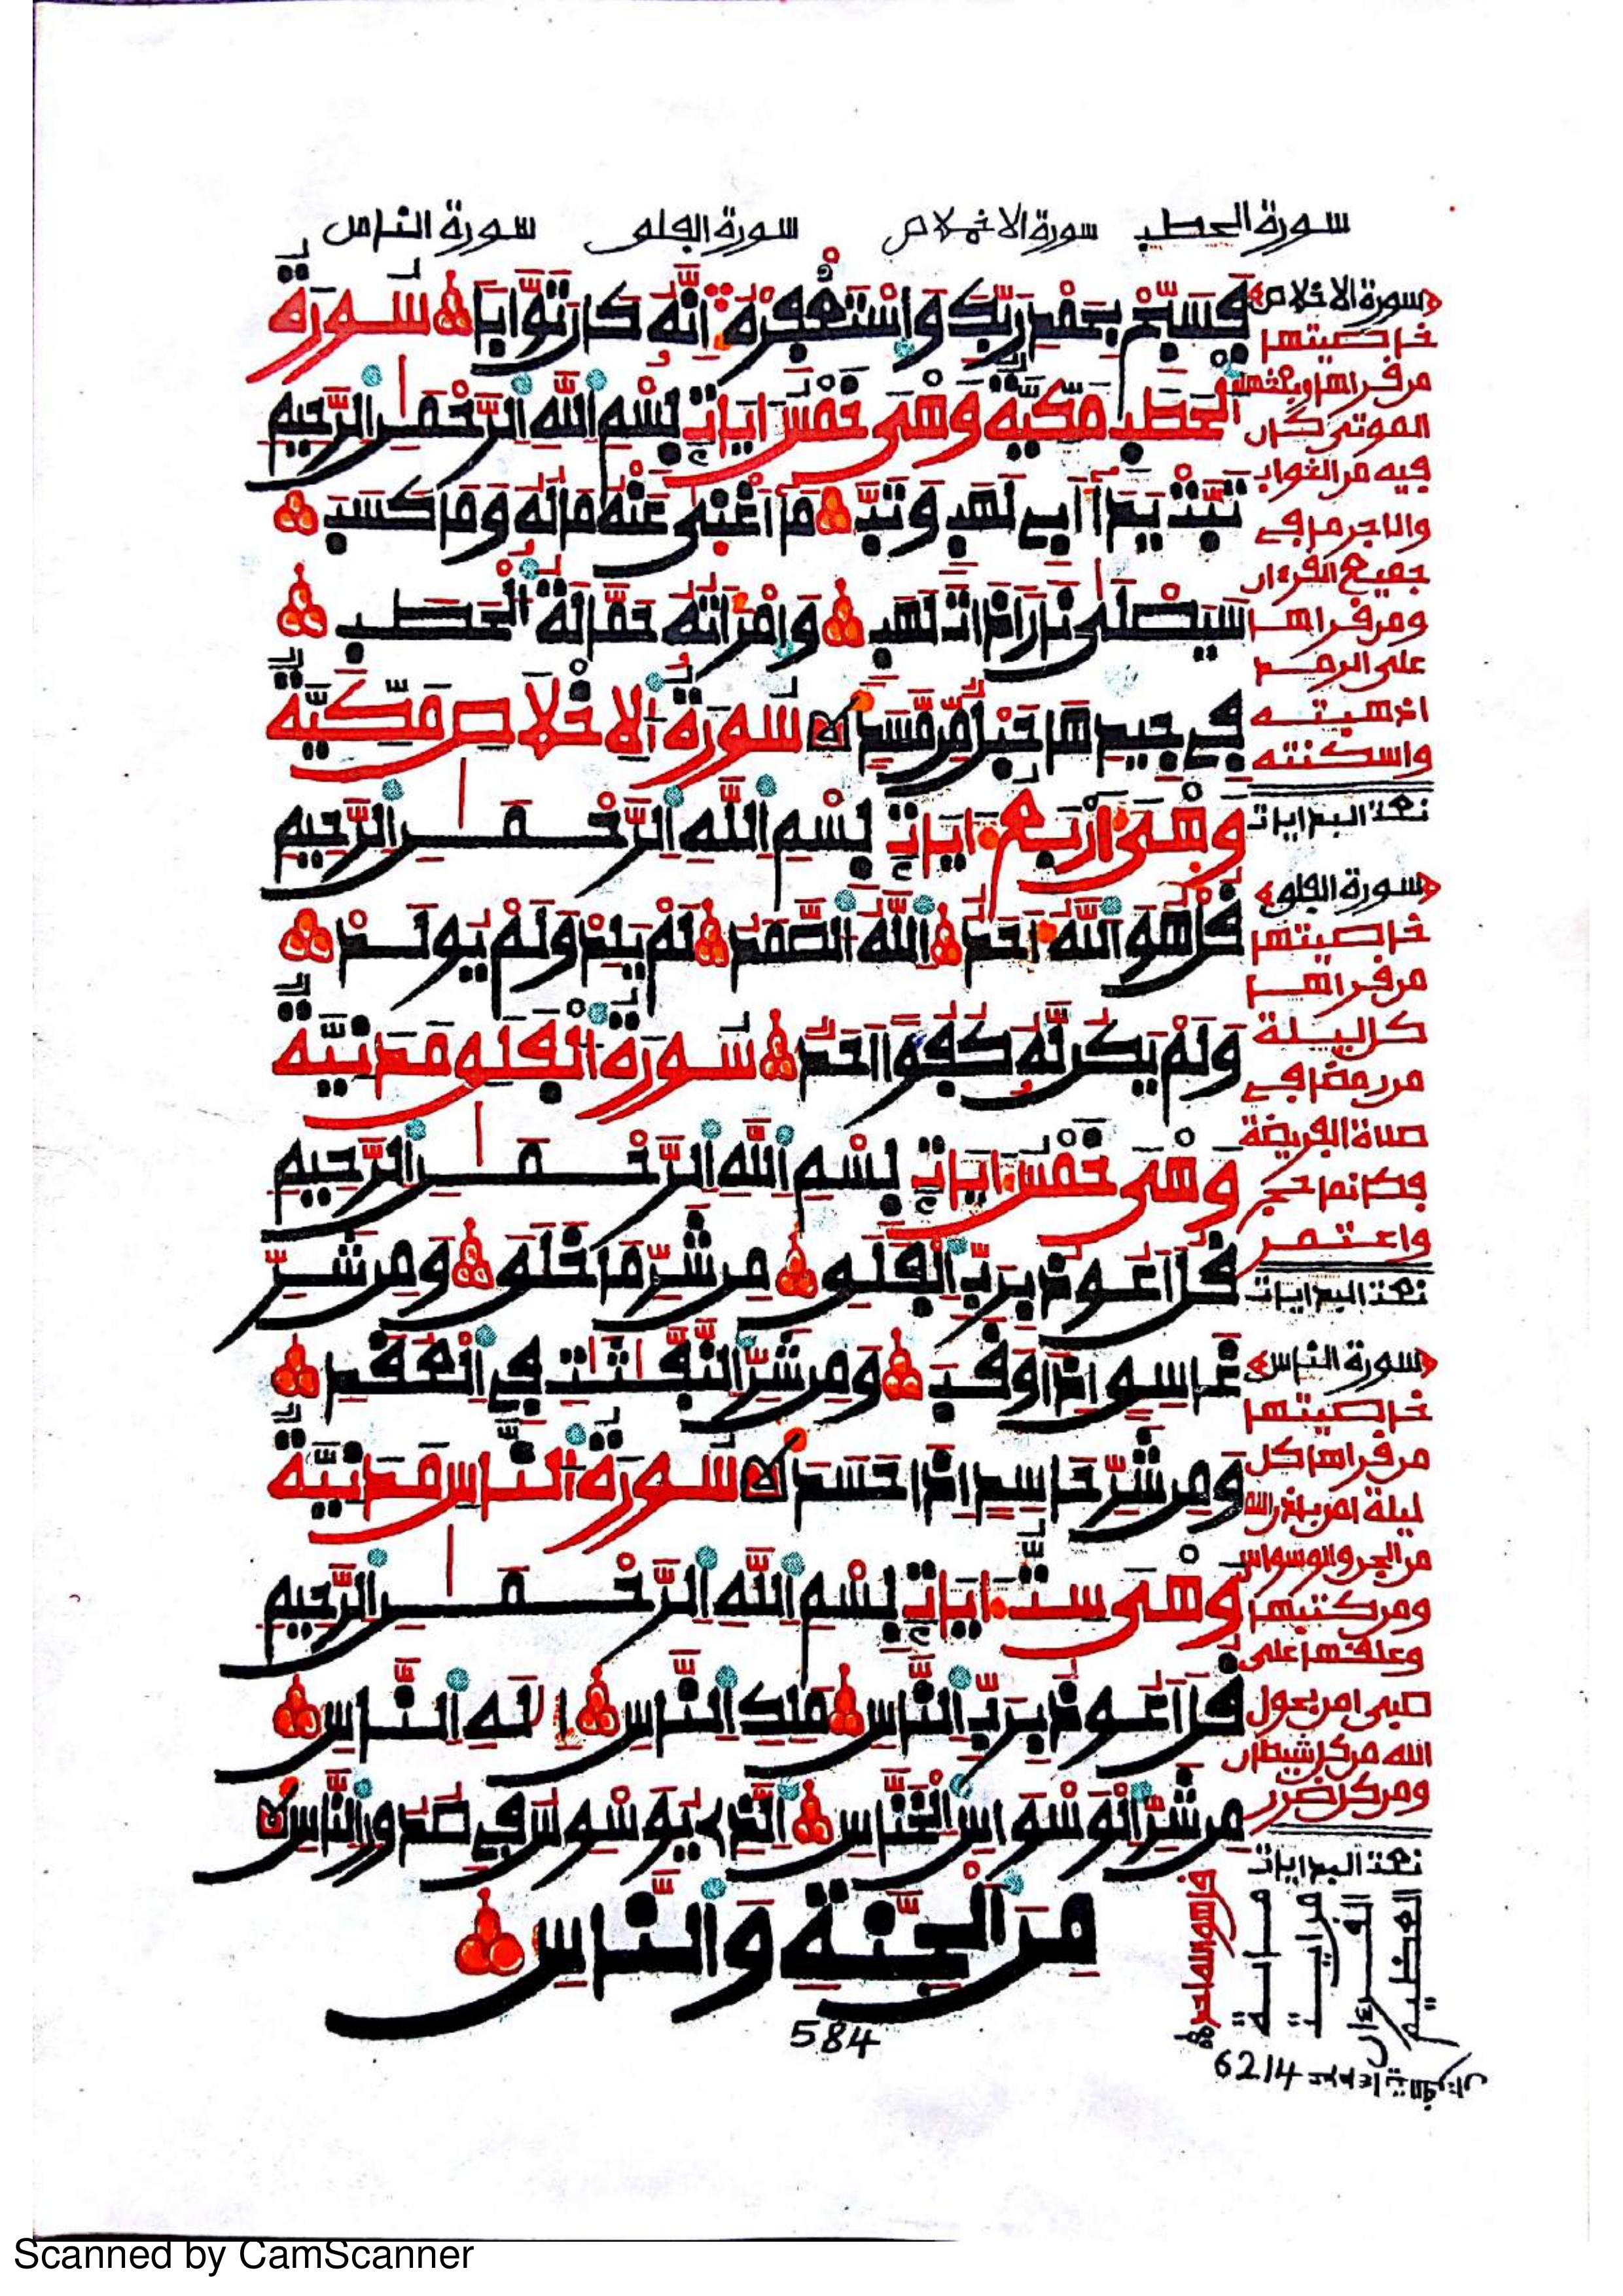 سورة الحطب سورة الاخلاص سورة الفلق سورة الناس
فَسَبِّحْ بِحَمْدِ رَبِّكَ وَاسْتَغْفِرْهُ إِنَّهُ كَانَ تَوَّابًا سُورَةُ
الْحَطَبِ مَكِّيَّةٌ وَهْيَ خَمْسُ ءَايَاتٍ بِسْمِ اللَّهِ الرَّحْمَٰنِ الرَّحِيمِ
تَبَّتْ يَدَا أَبِي لَهَبٍ وَتَبَّ مَا أَغْنَىٰ عَنْهُ مَالُهُ وَمَا كَسَبَ
سَيَصْلَىٰ نَارًا ذَاتَ لَهَبٍ وَامْرَأَتُهُ حَمَّالَةُ الْحَطَبِ
فِي جِيدِهَا حَبْلٌ مِّن مَّسَدٍ سُورَةُ الِاخْلَاصِ مَكِّيَّةٌ
وَهْيَ أَرْبَعُ ءَايَاتٍ بِسْمِ اللَّهِ الرَّحْمَٰنِ الرَّحِيمِ
قُلْ هُوَ اللَّهُ أَحَدٌ اللَّهُ الصَّمَدُ لَمْ يَلِدْ وَلَمْ يُولَدْ
وَلَمْ يَكُن لَّهُ كُفُؤًا أَحَدٌ سُورَةُ الْفَلَقِ مَدَنِيَّةٌ
وَهْيَ خَمْسُ ءَايَاتٍ بِسْمِ اللَّهِ الرَّحْمَٰنِ الرَّحِيمِ
قُلْ أَعُوذُ بِرَبِّ الْفَلَقِ مِن شَرِّ مَا خَلَقَ وَمِن شَرِّ
غَاسِقٍ إِذَا وَقَبَ وَمِن شَرِّ النَّفَّٰثَٰتِ فِي الْعُقَدِ
وَمِن شَرِّ حَاسِدٍ إِذَا حَسَدَ سُورَةُ النَّاسِ مَدَنِيَّةٌ
وَهْيَ سِتُّ ءَايَاتٍ بِسْمِ اللَّهِ الرَّحْمَٰنِ الرَّحِيمِ
قُلْ أَعُوذُ بِرَبِّ النَّاسِ مَلِكِ النَّاسِ إِلَٰهِ النَّاسِ
مِن شَرِّ الْوَسْوَاسِ الْخَنَّاسِ الَّذِي يُوَسْوِسُ فِي صُدُورِ النَّاسِ
مِنَ الْجِنَّةِ وَالنَّاسِ
584
سورة الاخلاص
خاصيتها
من قراها
الموتى كان
فيه من الثواب
والاجر ما في
جميع القرءان
ومن قراها
على الرمد
اذهبته
واسكنته
تمت البدايات
سورة الفلق
خاصيتها
من قراها
كل ليلة
من رمضان في
صلاة الفريضة
فكانما حج
واعتمر
تمت البدايات
سورة الناس
خاصيتها
من قراها كل
ليلة امن باذن الله
من الجن والوسواس
ومن كتبها
وعلقها على
صبي امن بحول
الله من كل شيطان
ومن كل ضرر
تمت البدايات
قل هو الله احد
القرءان
العظيم
6214
Scanned by CamScanner